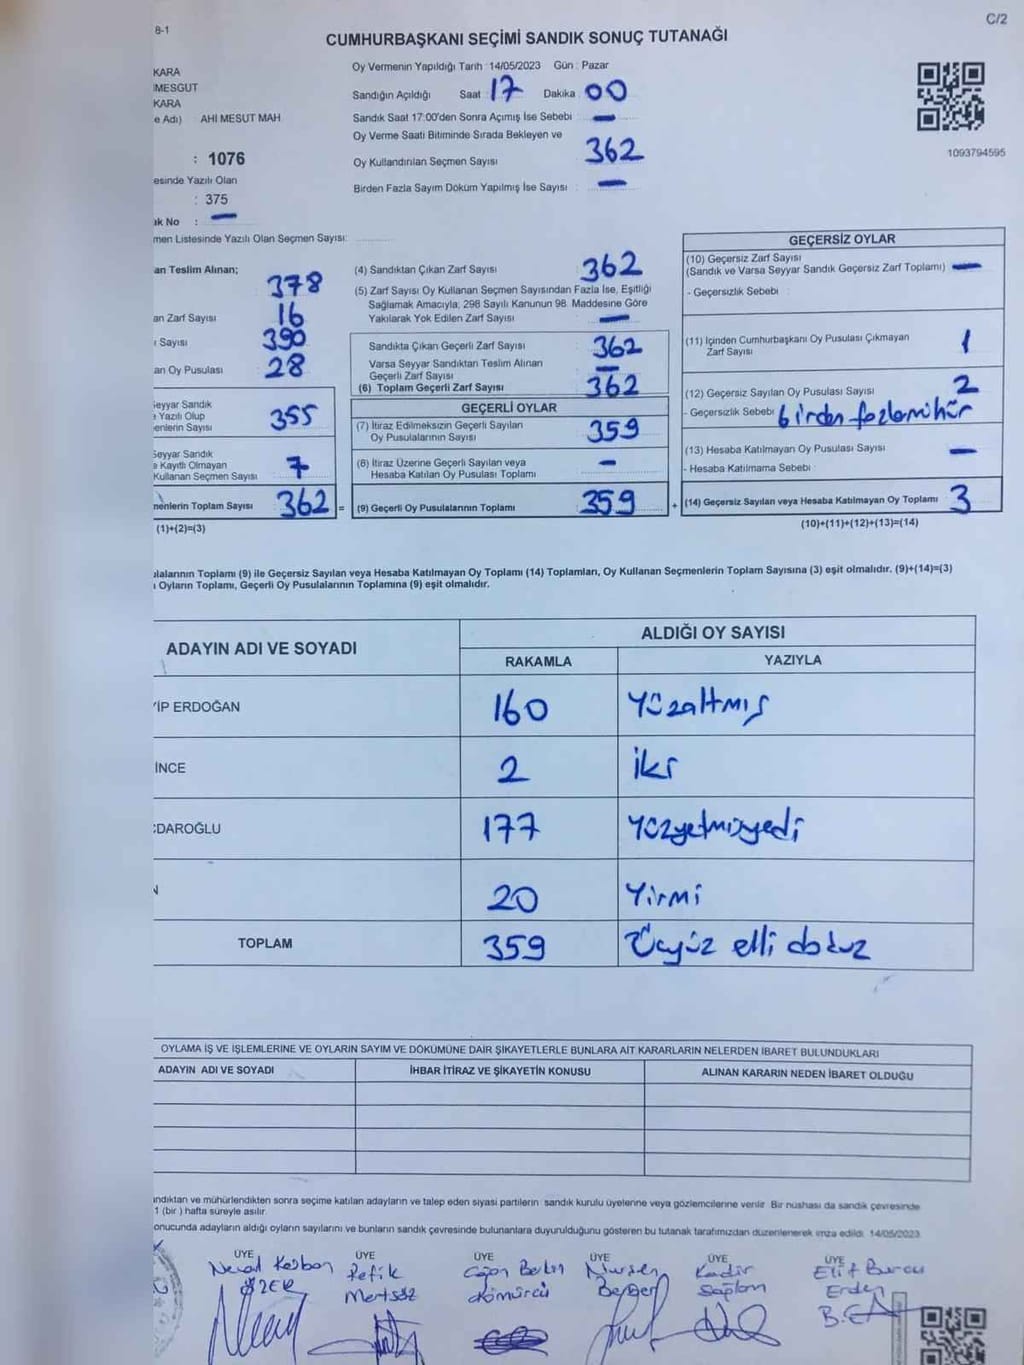 8-1
C/2
CUMHURBAŞKANI SEÇİMİ SANDIK SONUÇ TUTANAĞI
KARA
MESGUT
KARA
e Adı) AHİ MESUT MAH
: 1076
esinde Yazılı Olan
: 375
ak No : —
men Listesinde Yazılı Olan Seçmen Sayısı:
Oy Vermenin Yapıldığı Tarih : 14/05/2023 Gün : Pazar
Sandığın Açıldığı Saat : 17 Dakika : 00
Sandık Saat 17:00'den Sonra Açımış İse Sebebi : —
Oy Verme Saati Bitiminde Sırada Bekleyen ve
Oy Kullandırılan Seçmen Sayısı : 362
Birden Fazla Sayım Döküm Yapılmış İse Sayısı : —
1093794595
an Teslim Alınan;
378
an Zarf Sayısı 16
ı Sayısı 390
an Oy Pusulası 28
Seyyar Sandık
e Yazılı Olup
enlerin Sayısı 355
Seyyar Sandık
e Kayıtlı Olmayan
Kullanan Seçmen Sayısı 7
menlerin Toplam Sayısı 362 =
(1)+(2)=(3)
(4) Sandıktan Çıkan Zarf Sayısı 362
(5) Zarf Sayısı Oy Kullanan Seçmen Sayısından Fazla İse, Eşitliği
Sağlamak Amacıyla; 298 Sayılı Kanunun 98. Maddesine Göre
Yakılarak Yok Edilen Zarf Sayısı —
Sandıkta Çıkan Geçerli Zarf Sayısı 362
Varsa Seyyar Sandıktan Teslim Alınan
Geçerli Zarf Sayısı —
(6) Toplam Geçerli Zarf Sayısı 362
GEÇERLİ OYLAR
(7) İtiraz Edilmeksizin Geçerli Sayılan
Oy Pusulalarının Sayısı 359
(8) İtiraz Üzerine Geçerli Sayılan veya
Hesaba Katılan Oy Pusulası Toplamı —
(9) Geçerli Oy Pusulalarının Toplamı 359 +
GEÇERSİZ OYLAR
(10) Geçersiz Zarf Sayısı
(Sandık ve Varsa Seyyar Sandık Geçersiz Zarf Toplamı) —
- Geçersizlik Sebebi :
(11) İçinden Cumhurbaşkanı Oy Pusulası Çıkmayan
Zarf Sayısı 1
(12) Geçersiz Sayılan Oy Pusulası Sayısı 2
- Geçersizlik Sebebi : birden fazla mühür
(13) Hesaba Katılmayan Oy Pusulası Sayısı —
- Hesaba Katılmama Sebebi :
(14) Geçersiz Sayılan veya Hesaba Katılmayan Oy Toplamı 3
(10)+(11)+(12)+(13)=(14)
ulalarının Toplamı (9) ile Geçersiz Sayılan veya Hesaba Katılmayan Oy Toplamı (14) Toplamları, Oy Kullanan Seçmenlerin Toplam Sayısına (3) eşit olmalıdır. (9)+(14)=(3)
ı Oyların Toplamı, Geçerli Oy Pusulalarının Toplamına (9) eşit olmalıdır.
ADAYIN ADI VE SOYADI ALDIĞI OY SAYISI
RAKAMLA YAZIYLA
YİP ERDOĞAN 160 Yüzaltmış
İNCE 2 iki
ÇDAROĞLU 177 Yüzyetmişyedi
N 20 Yirmi
TOPLAM 359 Üçyüz elli dokuz
OYLAMA İŞ VE İŞLEMLERİNE VE OYLARIN SAYIM VE DÖKÜMÜNE DAİR ŞİKAYETLERLE BUNLARA AİT KARARLARIN NELERDEN İBARET BULUNDUKLARI
ADAYIN ADI VE SOYADI İHBAR İTİRAZ VE ŞİKAYETİN KONUSU ALINAN KARARIN NEDEN İBARET OLDUĞU
ndıktan ve mühürlendikten sonra seçime katılan adayların ve talep eden siyasi partilerin sandık kurulu üyelerine veya gözlemcilerine verilir. Bir nushası da sandık çevresinde
1 (bir ) hafta süreyle asılır.
onucunda adayların aldığı oyların sayılarını ve bunların sandık çevresinde bulunanlara duyurulduğunu gösteren bu tutanak tarafımızdan düzenlenerek imza edildi. 14/05/2023
ÜYE ÜYE ÜYE ÜYE ÜYE ÜYE
Refik Nursen Kadir Elif Burcu
ÖZER Mertsöz Kömürcü Berber Sağlam Erden
B.E